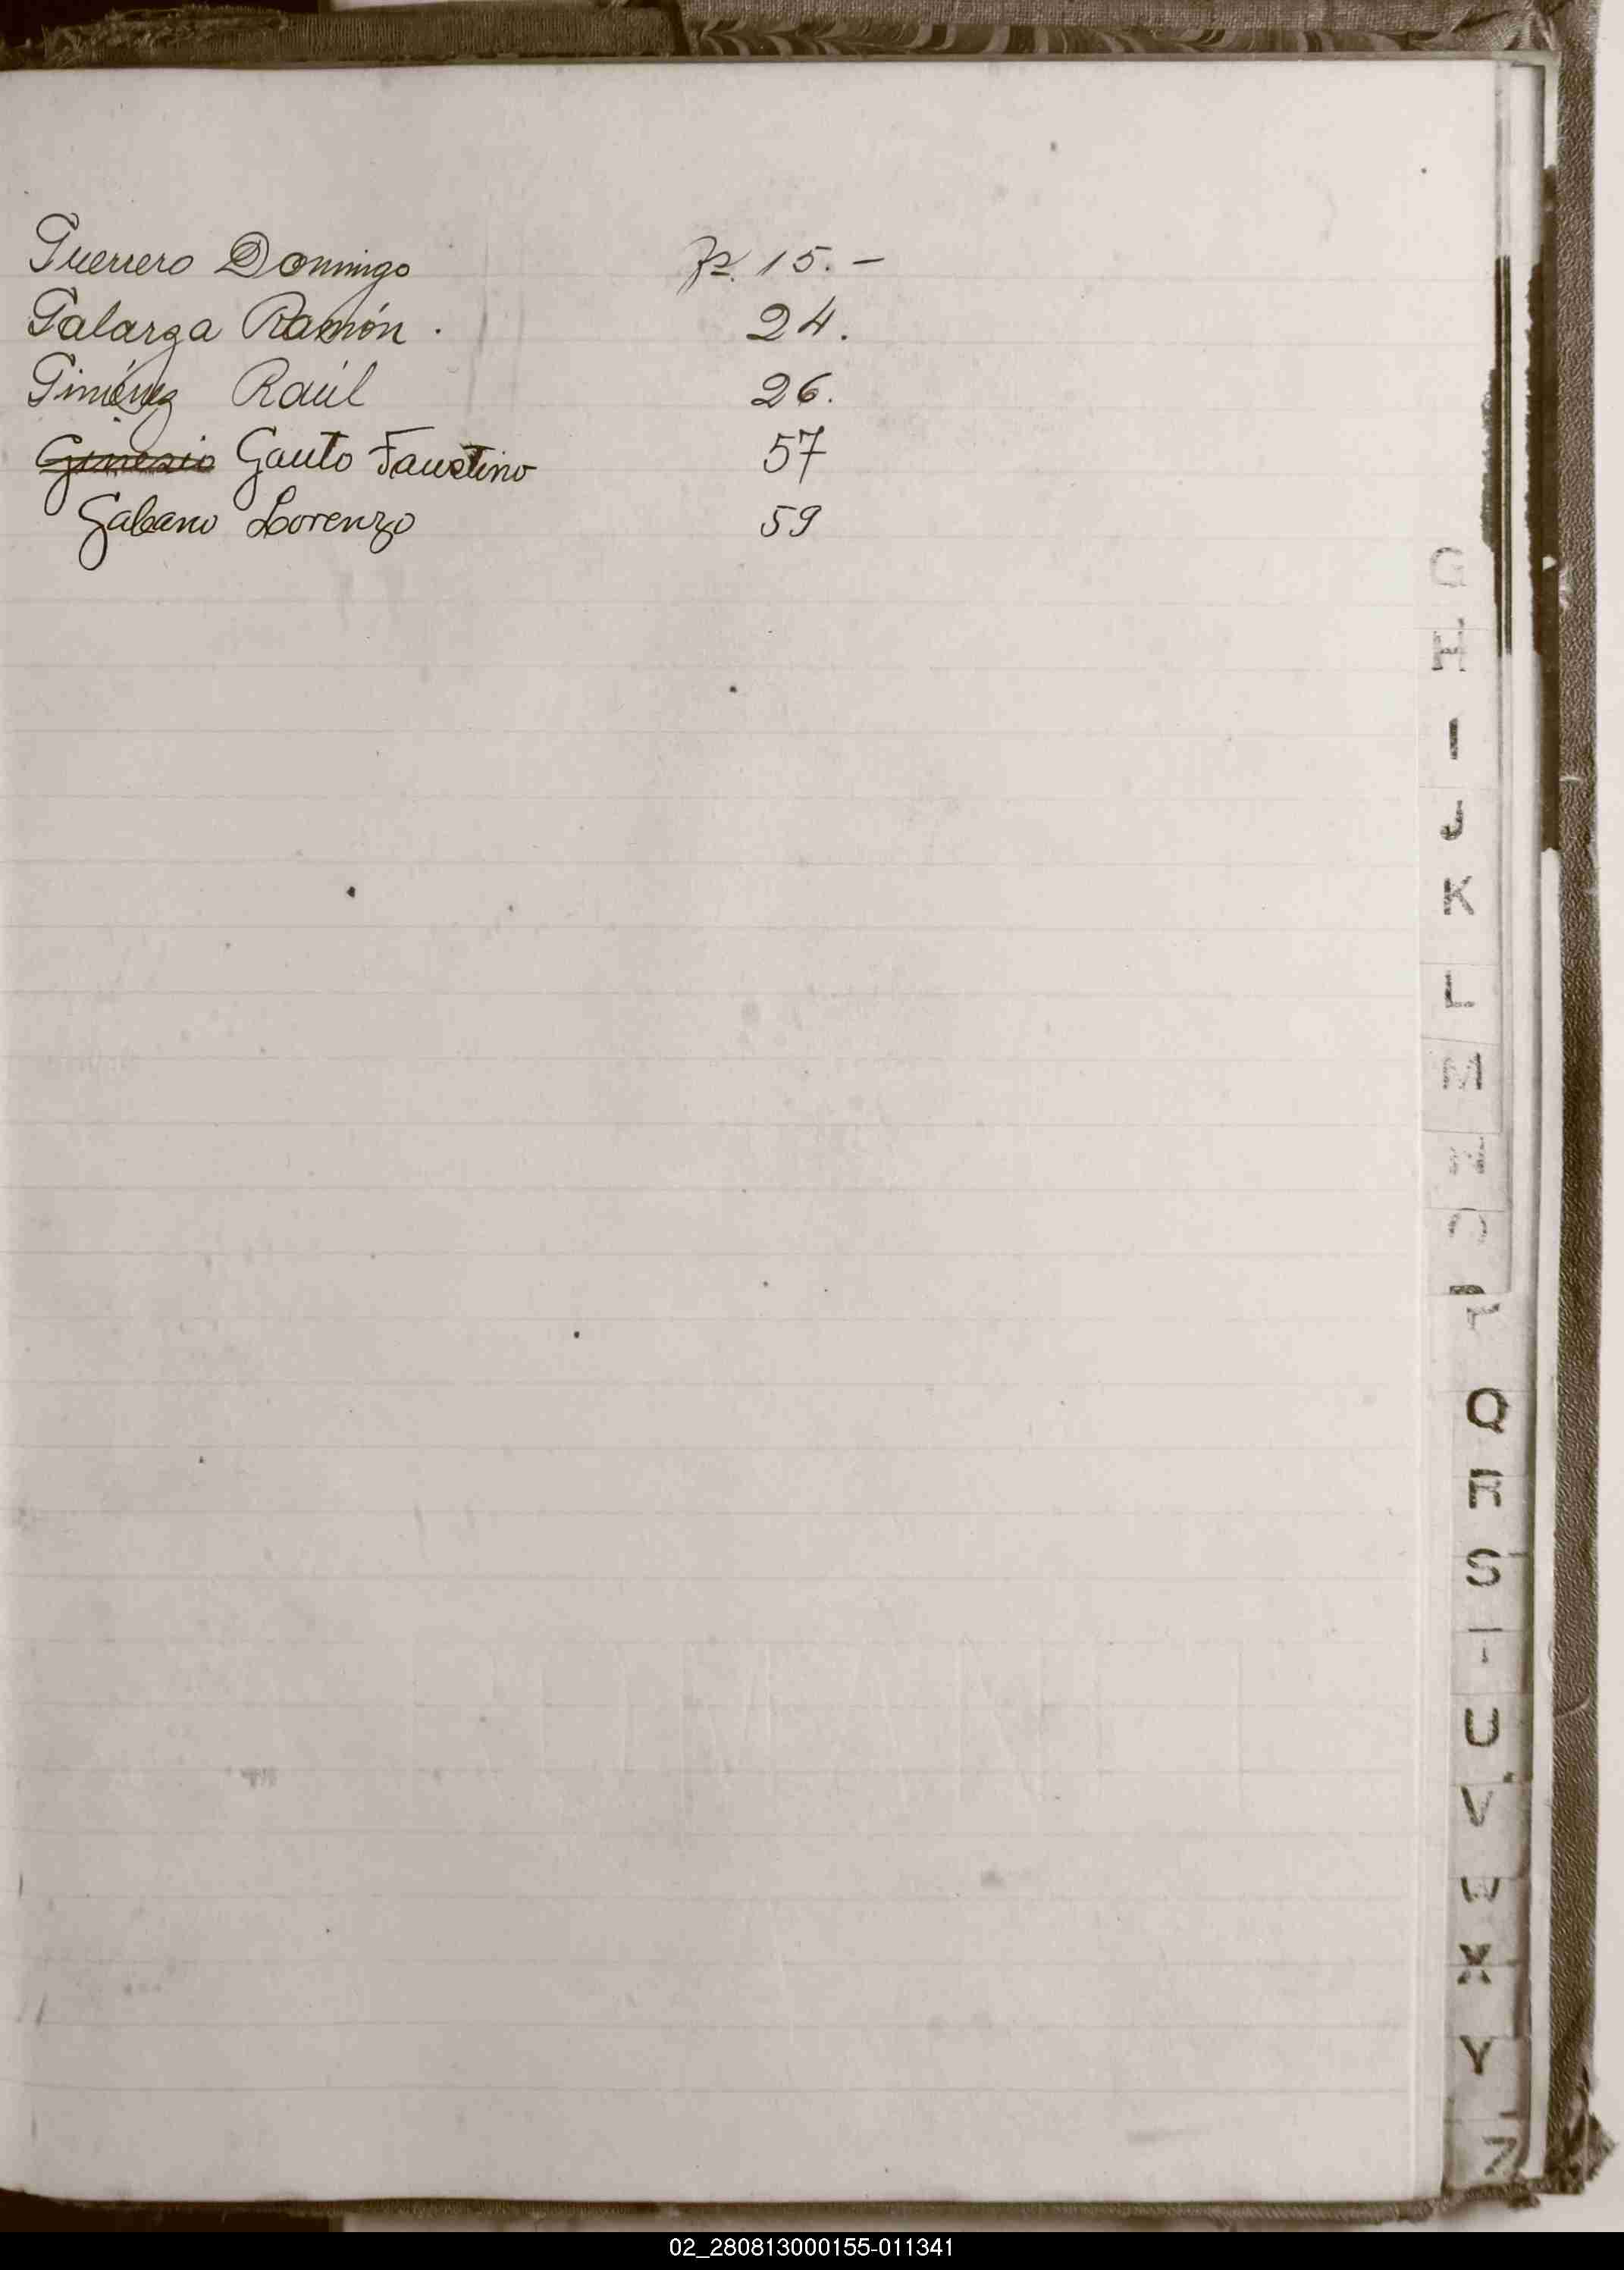 Guerrero Domingo fs. 15. -
Galarza Ramón. 24.
Giménez Raúl 26.
Ginesio Gauto Faustino 57
Gabano Lorenzo 59
G
H
I
J
K
L
M
N
O
P
Q
R
S
T
U
V
W
X
Y
Z
02_280813000155-011341